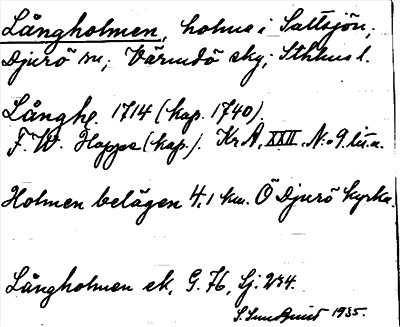 Långholmen, holme i Saltsjön,
Djurö sn; Värmdö skg; Sthlms l.
Långh. 1714 (kop. 1740).
F. W. Hoppe (kop.). Kr A, XXII, N:o 9 lit. a.
Holmen belägen 4,1 km. Ö Djurö kyrka.
Långholmen ek. G. 76, Sj. 234.
S. Sundquist 1935.